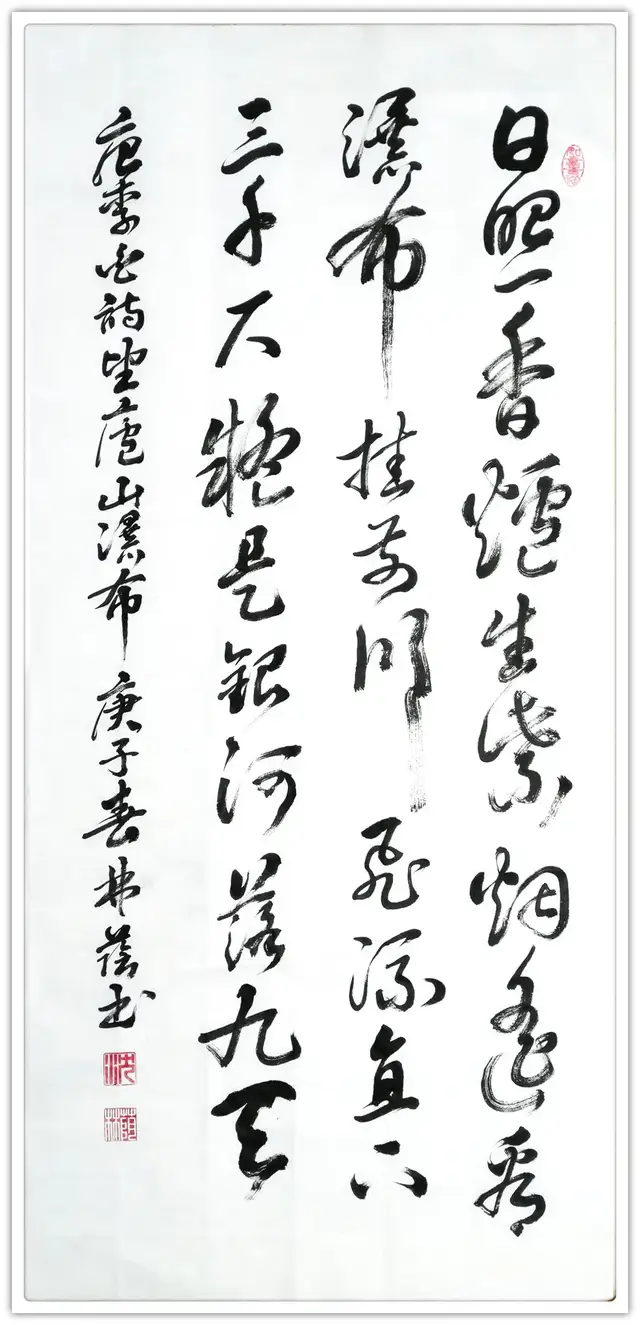 日照香爐生紫烟遙看
瀑布挂前川飛流直下
三千尺疑是銀河落九天
唐李白詩望廬山瀑布 庚子春 蔭书